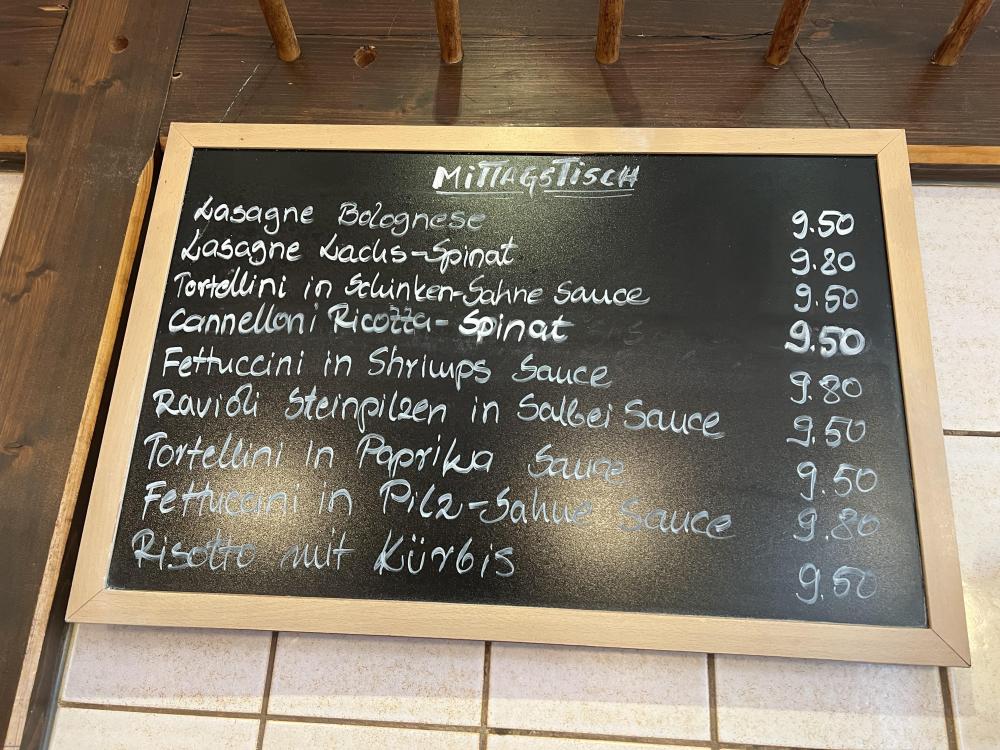 MITTAGSTISCH
Lasagne Bolognese 9.50
Lasagne Lachs-Spinat 9.80
Tortellini in Schinken-Sahne Sauce 9.50
Cannelloni Ricotta-Spinat 9.50
Fettuccini in Shrimps Sauce 9.80
Ravioli Steinpilzen in Salbei Sauce 9.50
Tortellini in Paprika Sauce 9.50
Fettuccini in Pilz-Sahne Sauce 9.80
Risotto mit Kürbis 9.50